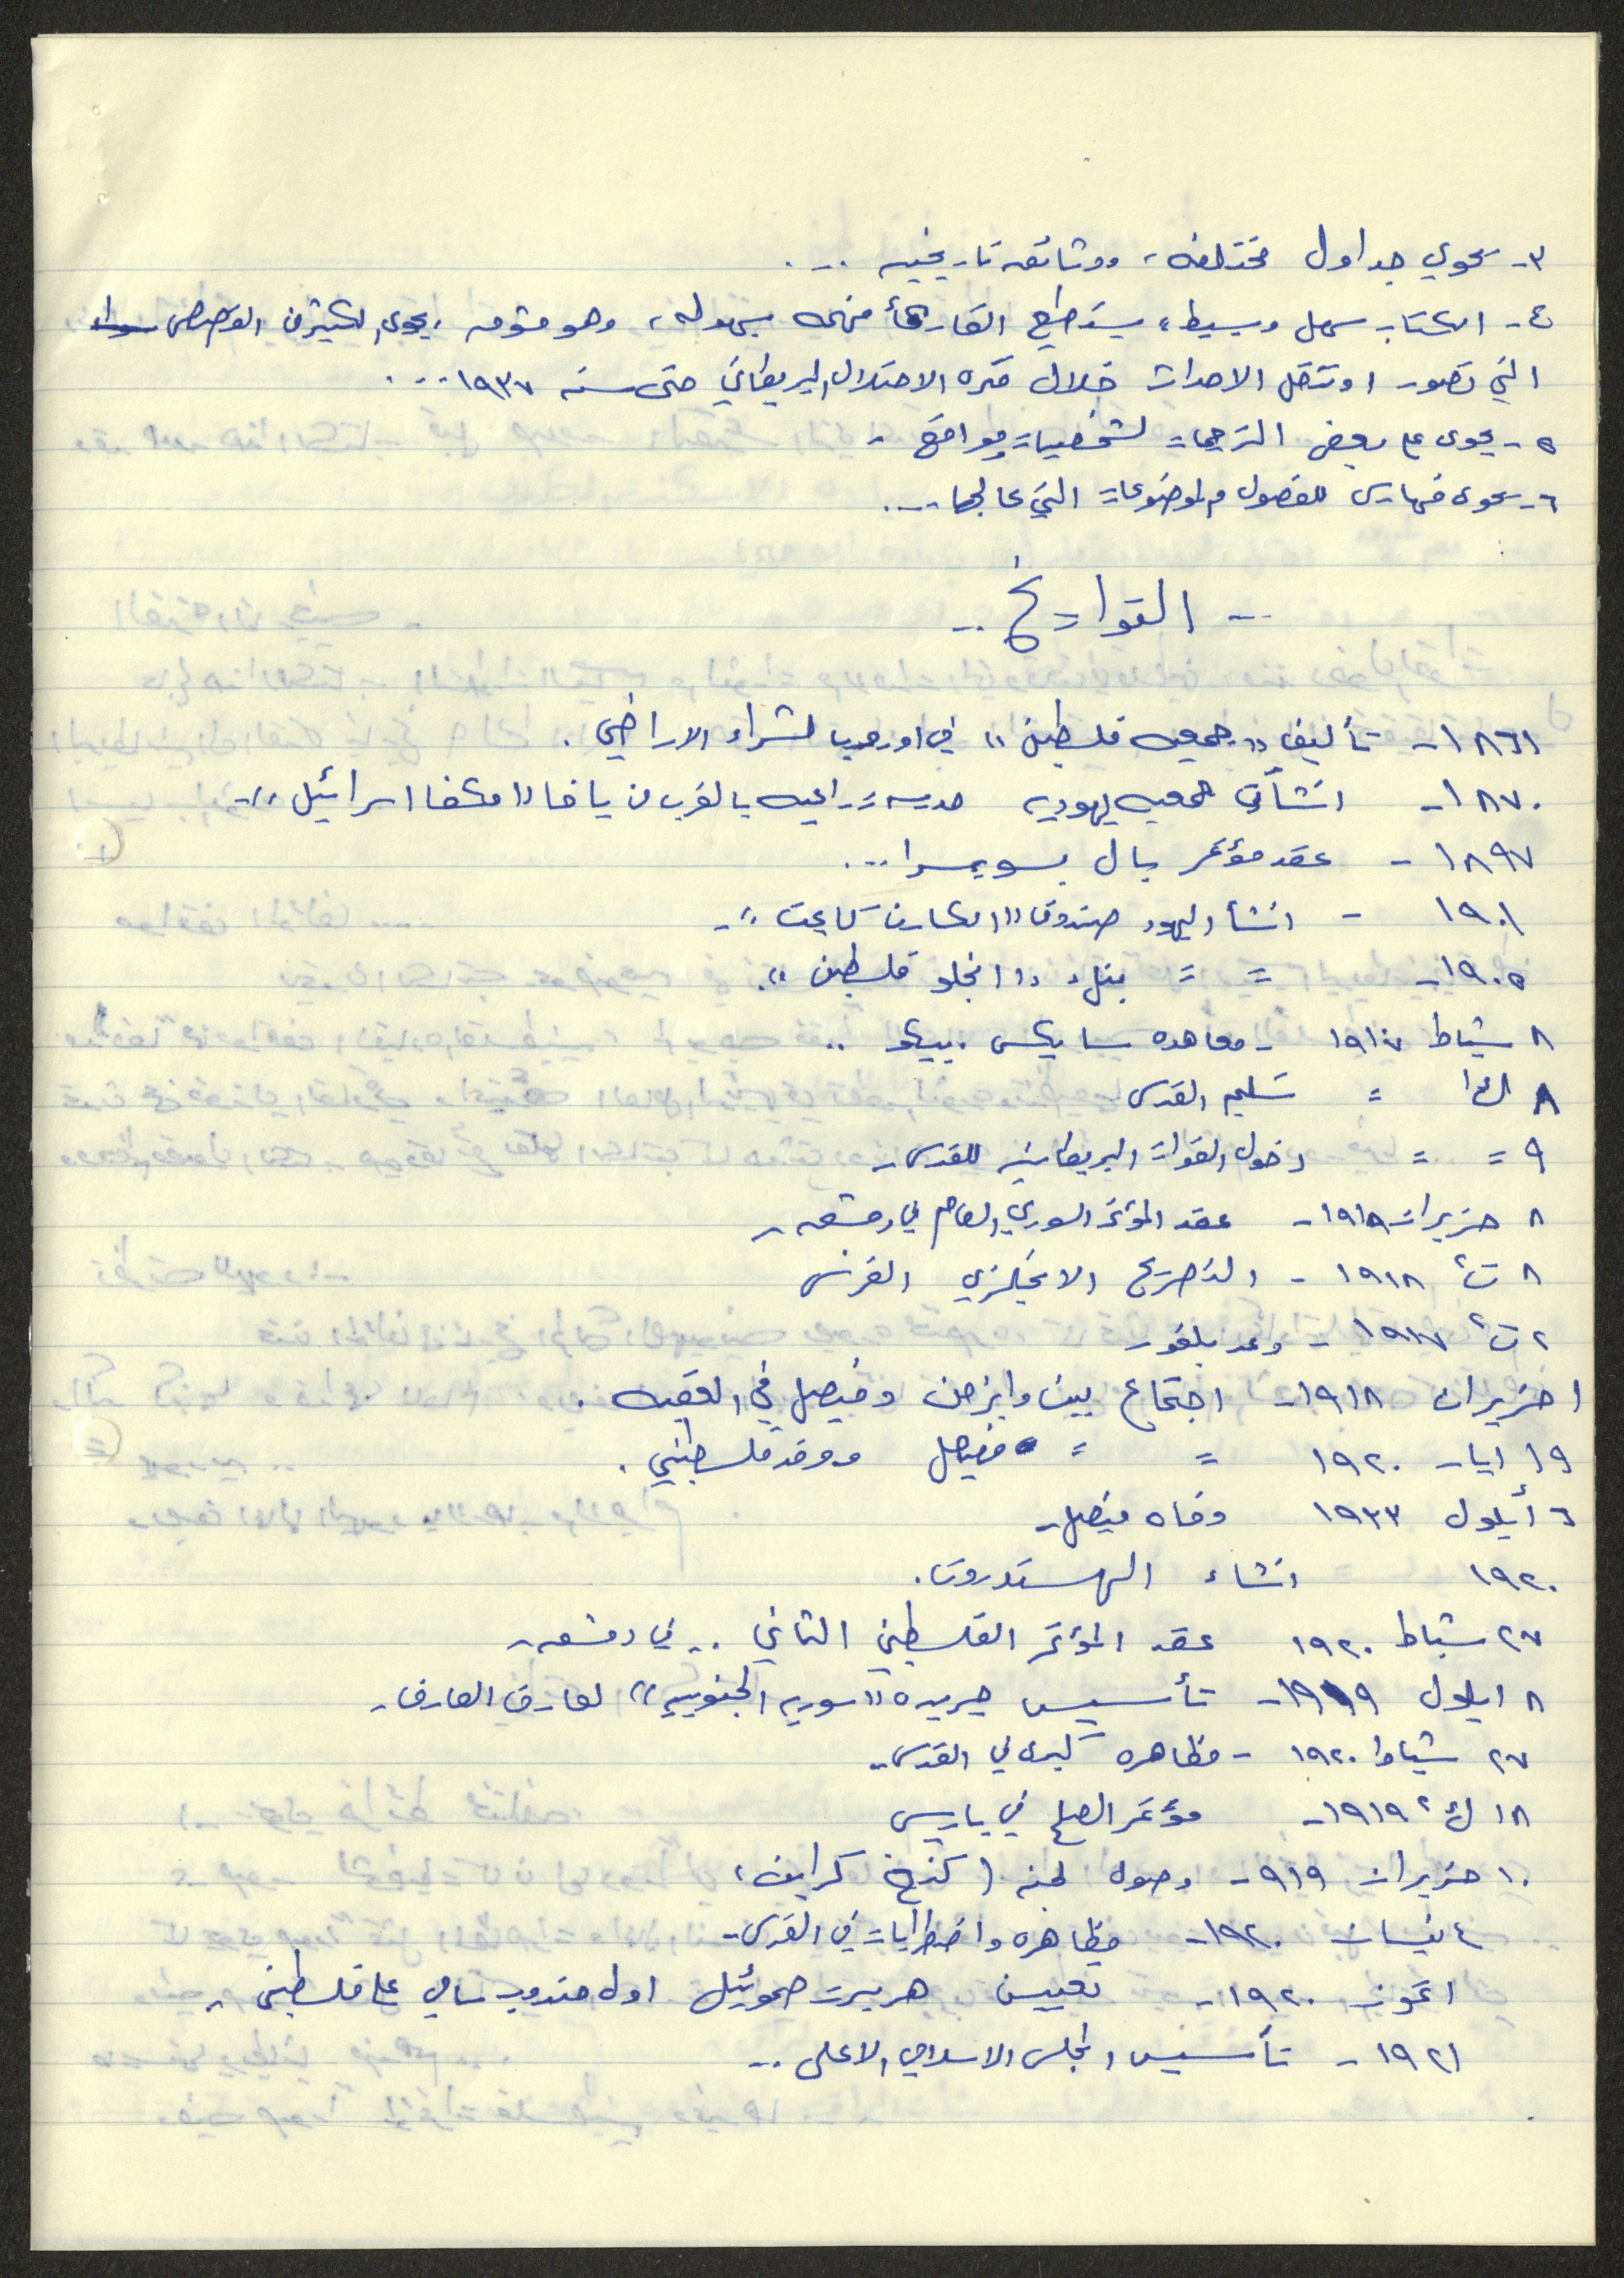 ٣- يحوي جداول مختلفه، ووثائق تاريخيه ...
٤- الكتاب سهل وبسيط، يستطيع القارئ فهمه بسهوله، وهو مشوق، يحوى الكثير من القصص
التي تصور او تنقل الاحداث خلال فتره الاحتلال البريطاني حتى سنه ١٩٣٧ ...
٥- يحوى على بعض الترجمات لشخصيات ومواقع -
٦- يحوى فهارس للفصول والموضوعات التي عالجها ...
-- التواريخ --
١٨٦١- تأليف "جمعيه فلسطين" في اوروبا لشراء الاراضي .
١٨٧٠- انشأت جمعيه يهوديه مدرسه زراعيه بالقرب من يافا "مكفا اسرائيل"-
١٨٩٧ - عقد مؤتمر بال بسويسرا ...
١٩٠١ - انشأ اليهود صندوق "الكارن كايمت"-
١٩٠٥- = = بنك "انجلو فلسطين".
٨ شباط ١٩١٧ - معاهده سايكس. بيكو ..
٨ ك١ = تسليم القدس
٩ = = دخول القوات البريطانيه للقدس-
٨ حزيران ١٩١٩- عقد المؤتمر السوري العام في دمشق-
٨ ت٢ ١٩١٨ - التصريح الانجليزي الفرنسي
٢ ت٢ ١٩١٧ - وعد بلفور
١ حزيران ١٩١٨- اجتماع بين وايزمن وفيصل في العقبه .
١٩ ايار ١٩٢٠ = = فيصل ووفد فلسطيني .
٦ أيلول ١٩٣٣ وفاه فيصل-
١٩٢٠ انشاء الهستدروت.
٢٧ شباط ١٩٢٠ عقد المؤتمر الفلسطيني الثاني .. في دمشق-
٨ ايلول ١٩١٩- تأسيس جريده "سوريه الجنوبيه" لعارف العارف-
٢٧ شباط ١٩٢٠ - مظاهره كبرى في القدس-
١٨ ك٢ ١٩١٩- مؤتمر الصلح في باريس
١٠ حزيران ٩١٩- وصول لجنه (كنج كراين)
٤ نيسان ١٩٢٠- مظاهره واضطرابات في القدس-
١ تموز ١٩٢٠- تعيين هربرت صموئيل اول مندوب سامي على فلسطين -
١٩٢١ - تأسيس المجلس الاسلامي الاعلى --